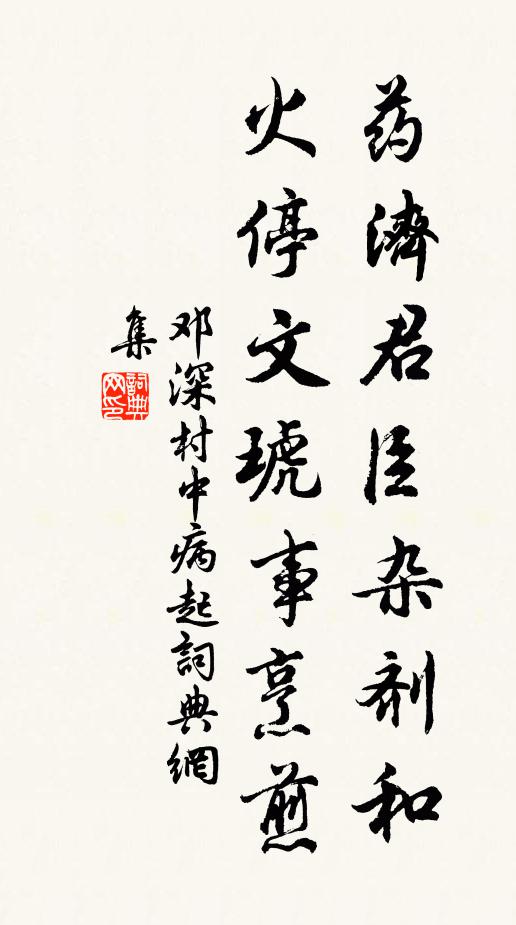 药濟君臣杂剂和
火停文琥事烹煎
邓深村中病起詞典網
集
詞典
网印